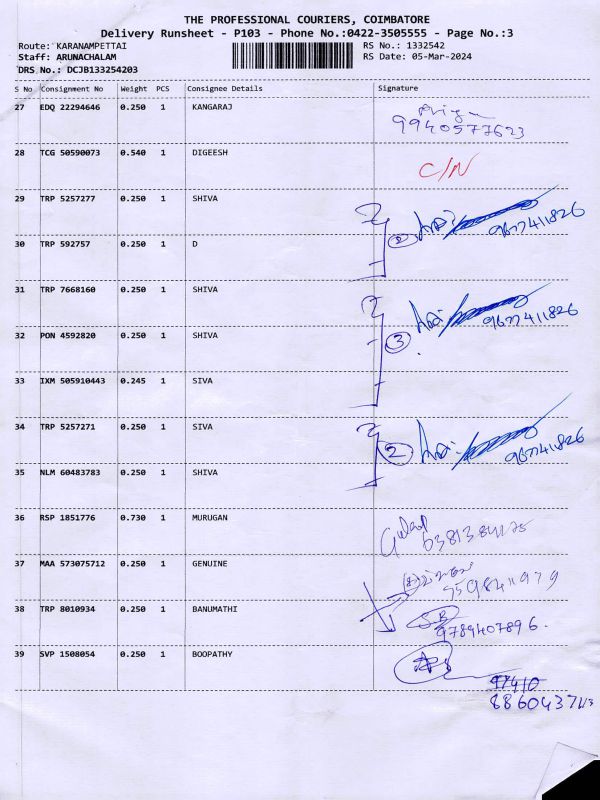 THE PROFESSIONAL COURIERS, COIMBATORE
Delivery Runsheet - P103 - Phone No.:0422-3505555 - Page No.:3
Route: KARANAMPETTAI RS No.: 1332542
Staff: ARUNACHALAM RS Date: 05-Mar-2024
DRS No.: DCJB133254203
S No Consignment No Weight PCS Consignee Details Signature
27 EDQ 22294646 0.250 1 KANGARAJ
9940577623
28 TCG 50590073 0.540 1 DIGEESH C/N
29 TRP 5257277 0.250 1 SHIVA
2 9677411826
30 TRP 592757 0.250 1 D
31 TRP 7668160 0.250 1 SHIVA
9677411826
32 PON 4592820 0.250 1 SHIVA 3
33 IXM 505910443 0.245 1 SIVA
34 TRP 5257271 0.250 1 SIVA
2
35 NLM 60483783 0.250 1 SHIVA
36 RSP 1851776 0.730 1 MURUGAN
37 MAA 573075712 0.250 1 GENUINE
38 TRP 8010934 0.250 1 BANUMATHI
9789407896.
39 SVP 1508054 0.250 1 BOOPATHY